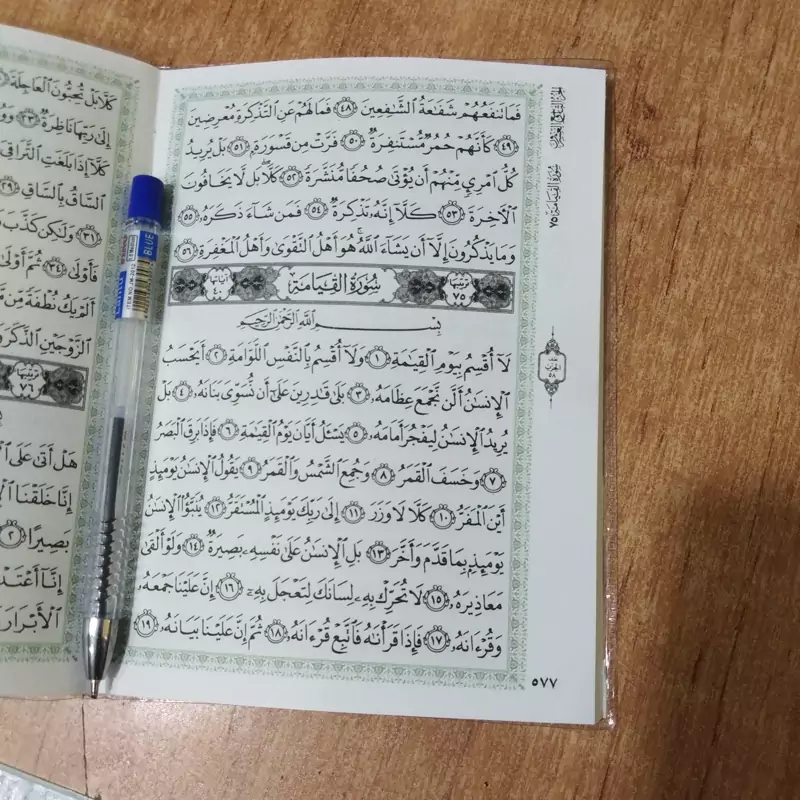 فَمَا تَنفَعُهُمْ شَفَٰعَةُ ٱلشَّٰفِعِينَ ٤٨ فَمَا لَهُمْ عَنِ ٱلتَّذْكِرَةِ مُعْرِضِينَ
٤٩ كَأَنَّهُمْ حُمُرٌ مُّسْتَنفِرَةٌ ٥٠ فَرَّتْ مِن قَسْوَرَةٍ ٥١ بَلْ يُرِيدُ
كُلُّ ٱمْرِئٍ مِّنْهُمْ أَن يُؤْتَىٰ صُحُفًا مُّنَشَّرَةً ٥٢ كَلَّا بَل لَّا يَخَافُونَ
ٱلْأَخِرَةَ ٥٣ كَلَّآ إِنَّهُۥ تَذْكِرَةٌ ٥٤ فَمَن شَآءَ ذَكَرَهُۥ ٥٥
وَمَا يَذْكُرُونَ إِلَّآ أَن يَشَآءَ ٱللَّهُ هُوَ أَهْلُ ٱلتَّقْوَىٰ وَأَهْلُ ٱلْمَغْفِرَةِ ٥٦
ترتيبها ٧٥ سُورَةُ ٱلْقِيَامَةِ آياتها ٤٠
بِسْمِ ٱللَّهِ ٱلرَّحْمَٰنِ ٱلرَّحِيمِ
لَآ أُقْسِمُ بِيَوْمِ ٱلْقِيَٰمَةِ ١ وَلَآ أُقْسِمُ بِٱلنَّفْسِ ٱللَّوَّامَةِ ٢ أَيَحْسَبُ
ٱلْإِنسَٰنُ أَلَّن نَّجْمَعَ عِظَامَهُۥ ٣ بَلَىٰ قَٰدِرِينَ عَلَىٰٓ أَن نُّسَوِّىَ بَنَانَهُۥ ٤ بَلْ
يُرِيدُ ٱلْإِنسَٰنُ لِيَفْجُرَ أَمَامَهُۥ ٥ يَسْـَٔلُ أَيَّانَ يَوْمُ ٱلْقِيَٰمَةِ ٦ فَإِذَا بَرِقَ ٱلْبَصَرُ
٧ وَخَسَفَ ٱلْقَمَرُ ٨ وَجُمِعَ ٱلشَّمْسُ وَٱلْقَمَرُ ٩ يَقُولُ ٱلْإِنسَٰنُ يَوْمَئِذٍ
أَيْنَ ٱلْمَفَرُّ ١٠ كَلَّا لَا وَزَرَ ١١ إِلَىٰ رَبِّكَ يَوْمَئِذٍ ٱلْمُسْتَقَرُّ ١٢ يُنَبَّؤُا۟ ٱلْإِنسَٰنُ
يَوْمَئِذٍۭ بِمَا قَدَّمَ وَأَخَّرَ ١٣ بَلِ ٱلْإِنسَٰنُ عَلَىٰ نَفْسِهِۦ بَصِيرَةٌ ١٤ وَلَوْ أَلْقَىٰ
مَعَاذِيرَهُۥ ١٥ لَا تُحَرِّكْ بِهِۦ لِسَانَكَ لِتَعْجَلَ بِهِۦٓ ١٦ إِنَّ عَلَيْنَا جَمْعَهُۥ
وَقُرْءَانَهُۥ ١٧ فَإِذَا قَرَأْنَٰهُ فَٱتَّبِعْ قُرْءَانَهُۥ ١٨ ثُمَّ إِنَّ عَلَيْنَا بَيَانَهُۥ ١٩
٥٧٧
سورة القيامة ٧٥
الحزب ٥٨
كَلَّا بَلْ تُحِبُّونَ ٱلْعَاجِلَةَ
إِلَىٰ رَبِّهَا نَاظِرَةٌ ٢٣
كَلَّآ إِذَا بَلَغَتِ ٱلتَّرَاقِىَ
ٱلسَّاقُ بِٱلسَّاقِ ٢٩
٣١ وَلَٰكِن كَذَّبَ
فَأَوْلَىٰ ٣٤ ثُمَّ أَوْلَىٰ
أَلَمْ يَكُ نُطْفَةً مِّن
ٱلزَّوْجَيْنِ ٱلذَّكَرَ
ترتيبها ٧٦
هَلْ أَتَىٰ عَلَى
إِنَّا خَلَقْنَا
بَصِيرًا ٢
إِنَّآ أَعْتَدْ
ٱلْأَبْرَارَ
BLUE